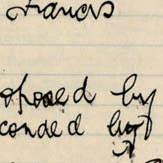 Francis
oposed by
conded by